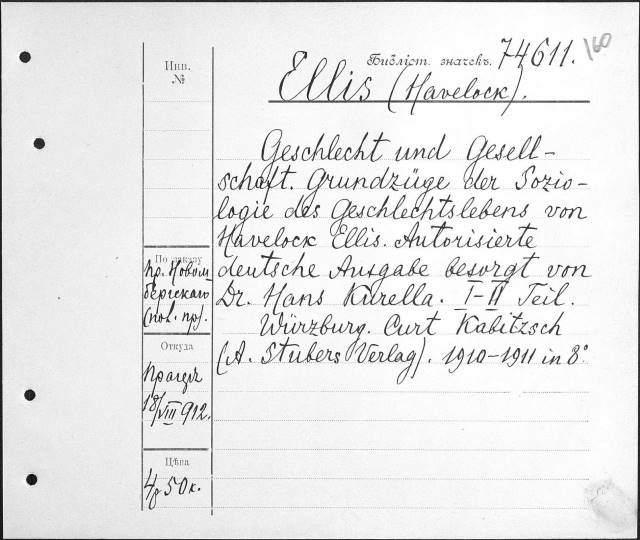 Библіот. значекъ. 74611.
160
Ellis (Havelock).
Инв.
№
Geschlecht und Gesell-
schaft. Grundzüge der Sozio-
logie des Geschlechtslebens von
Havelock Ellis. Autorisierte
deutsche Ausgabe besorgt von
Dr. Hans Kurella. I-II Teil.
Würzburg. Curt Kabitzsch
(A. Stubers Verlag). 1910-1911 in 8°
По заказу
пр. Новом
бергскаго
Откуда
18/VIII 912.
Цѣна
4р 50к.